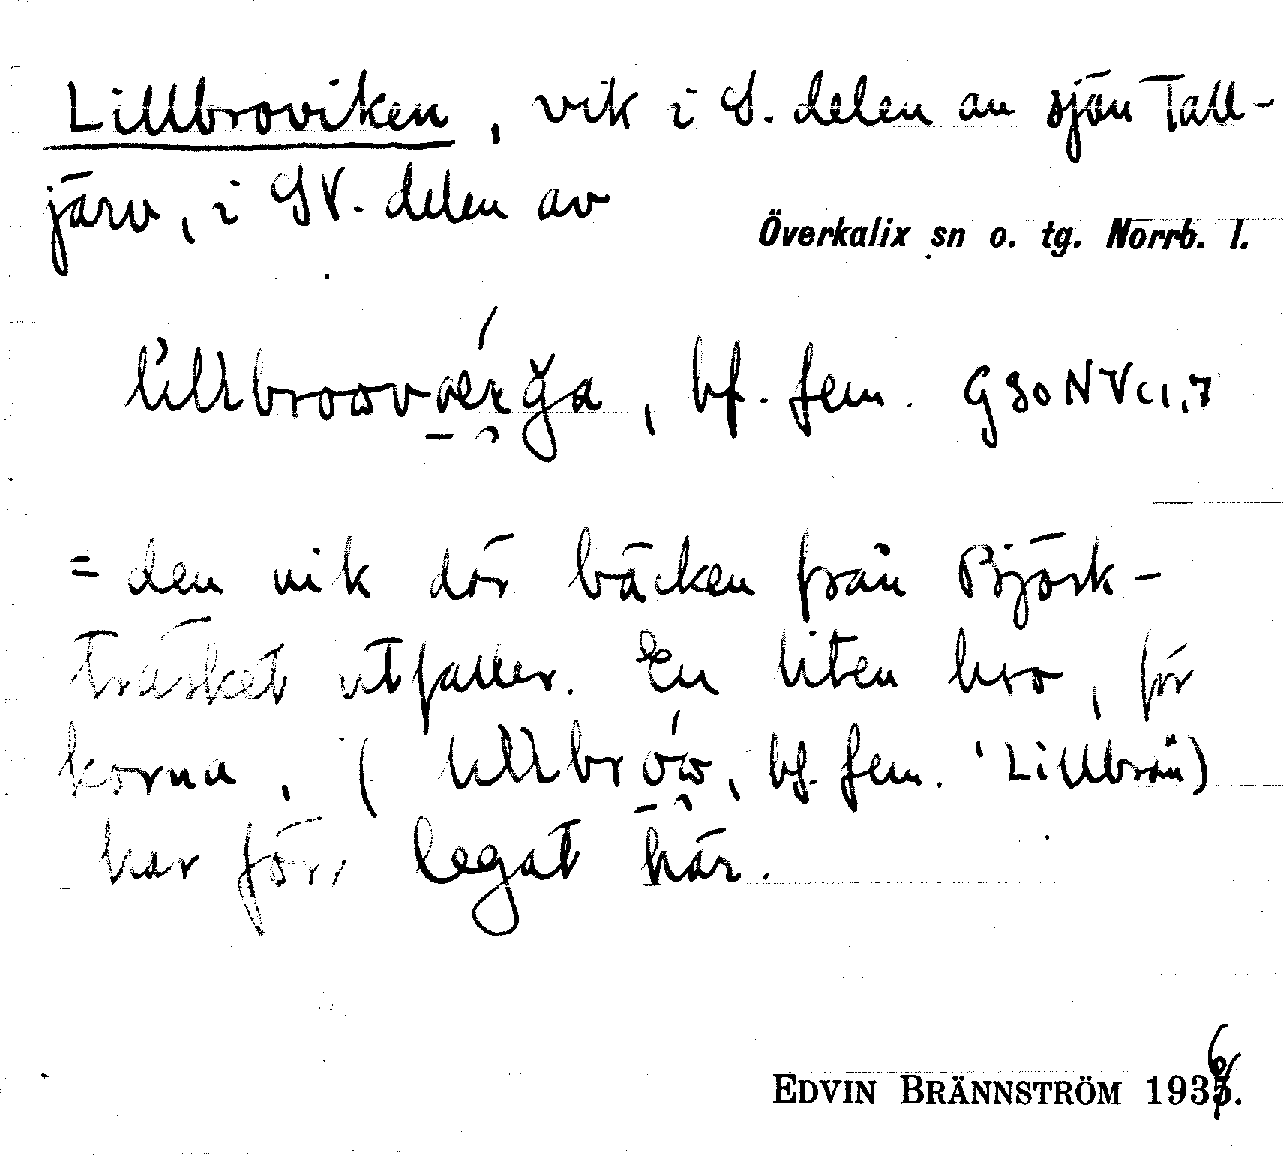 Lillbroviken, vik i S. delen av sjön Tall-
järv, i SV. delen av
Överkalix sn o. tg. Norrb. l.
bf. fem. G80NVc1,7
= den vik där bäcken från Björk-
träsket utfaller. En liten bro, för
korna, ( bf. fem. 'Lillbron)
har förr legat här.
EDVIN BRÄNNSTRÖM 1936.